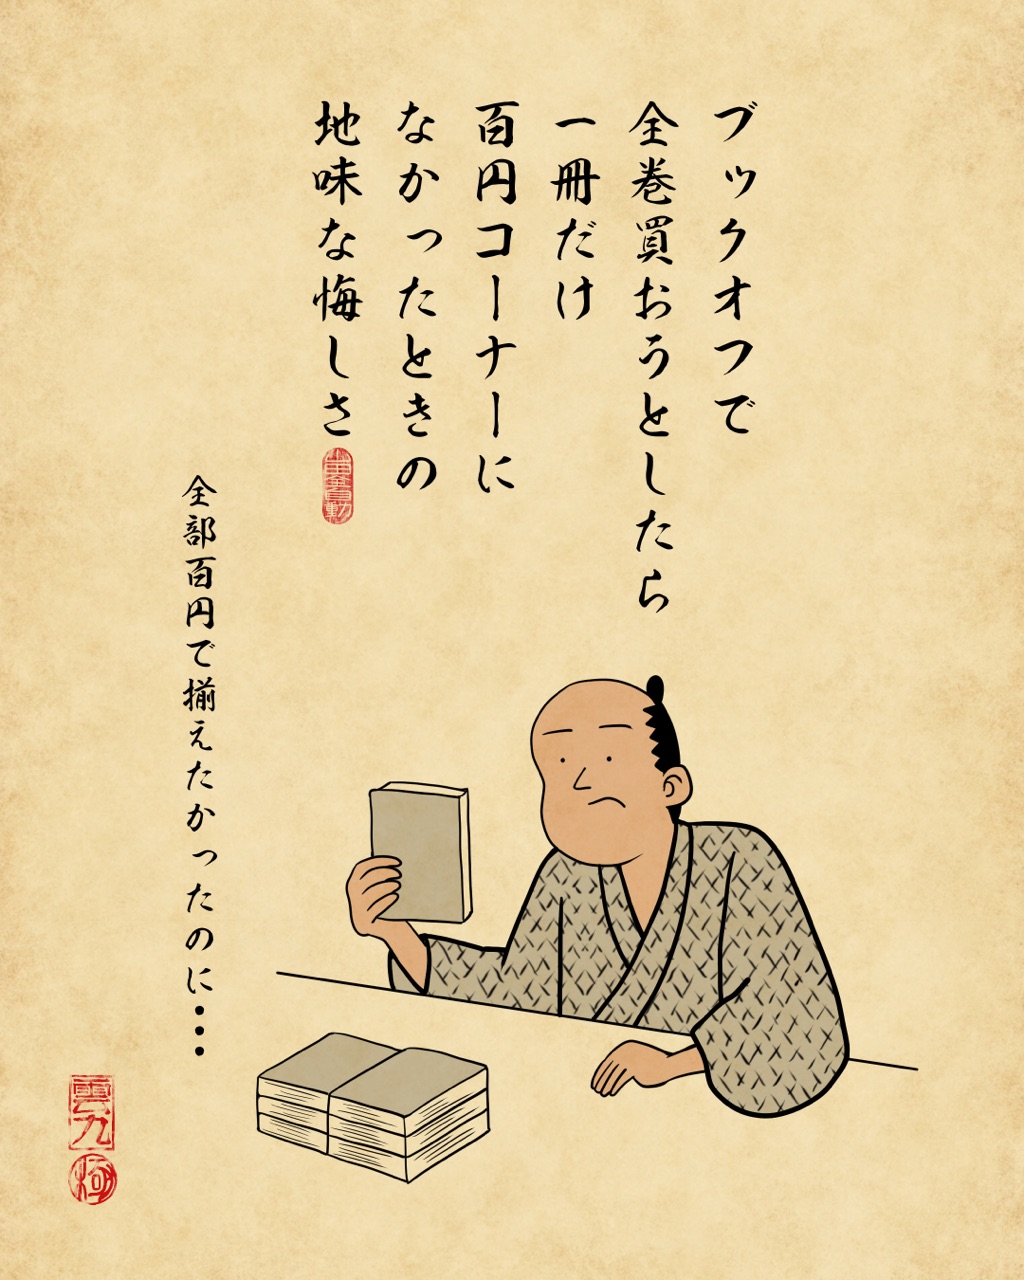 ブックオフで
全巻買おうとしたら
一冊だけ
百円コーナーに
なかったときの
地味な悔しさ
全部百円で揃えたかったのに・・・